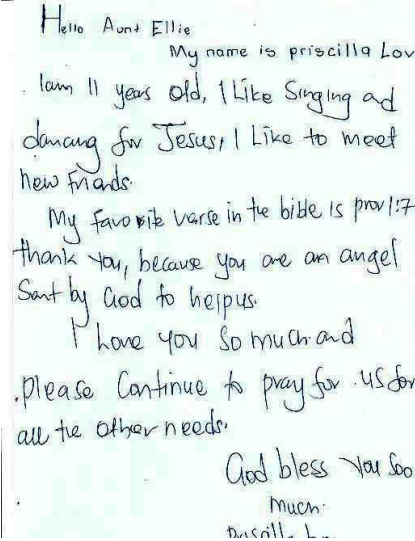 Hello Aunt Ellie
My name is priscilla Lov
Iam 11 years old, I Like Singing ad
dancing for Jesus, I Like to meet
new friends.
My favorite verse in the bible is prov 1:7
thank you, because you are an angel
Sent by God to help us.
I Love you So much and
please Continue to pray for us for
all the other needs.
God bless You Soo
much.
Priscilla